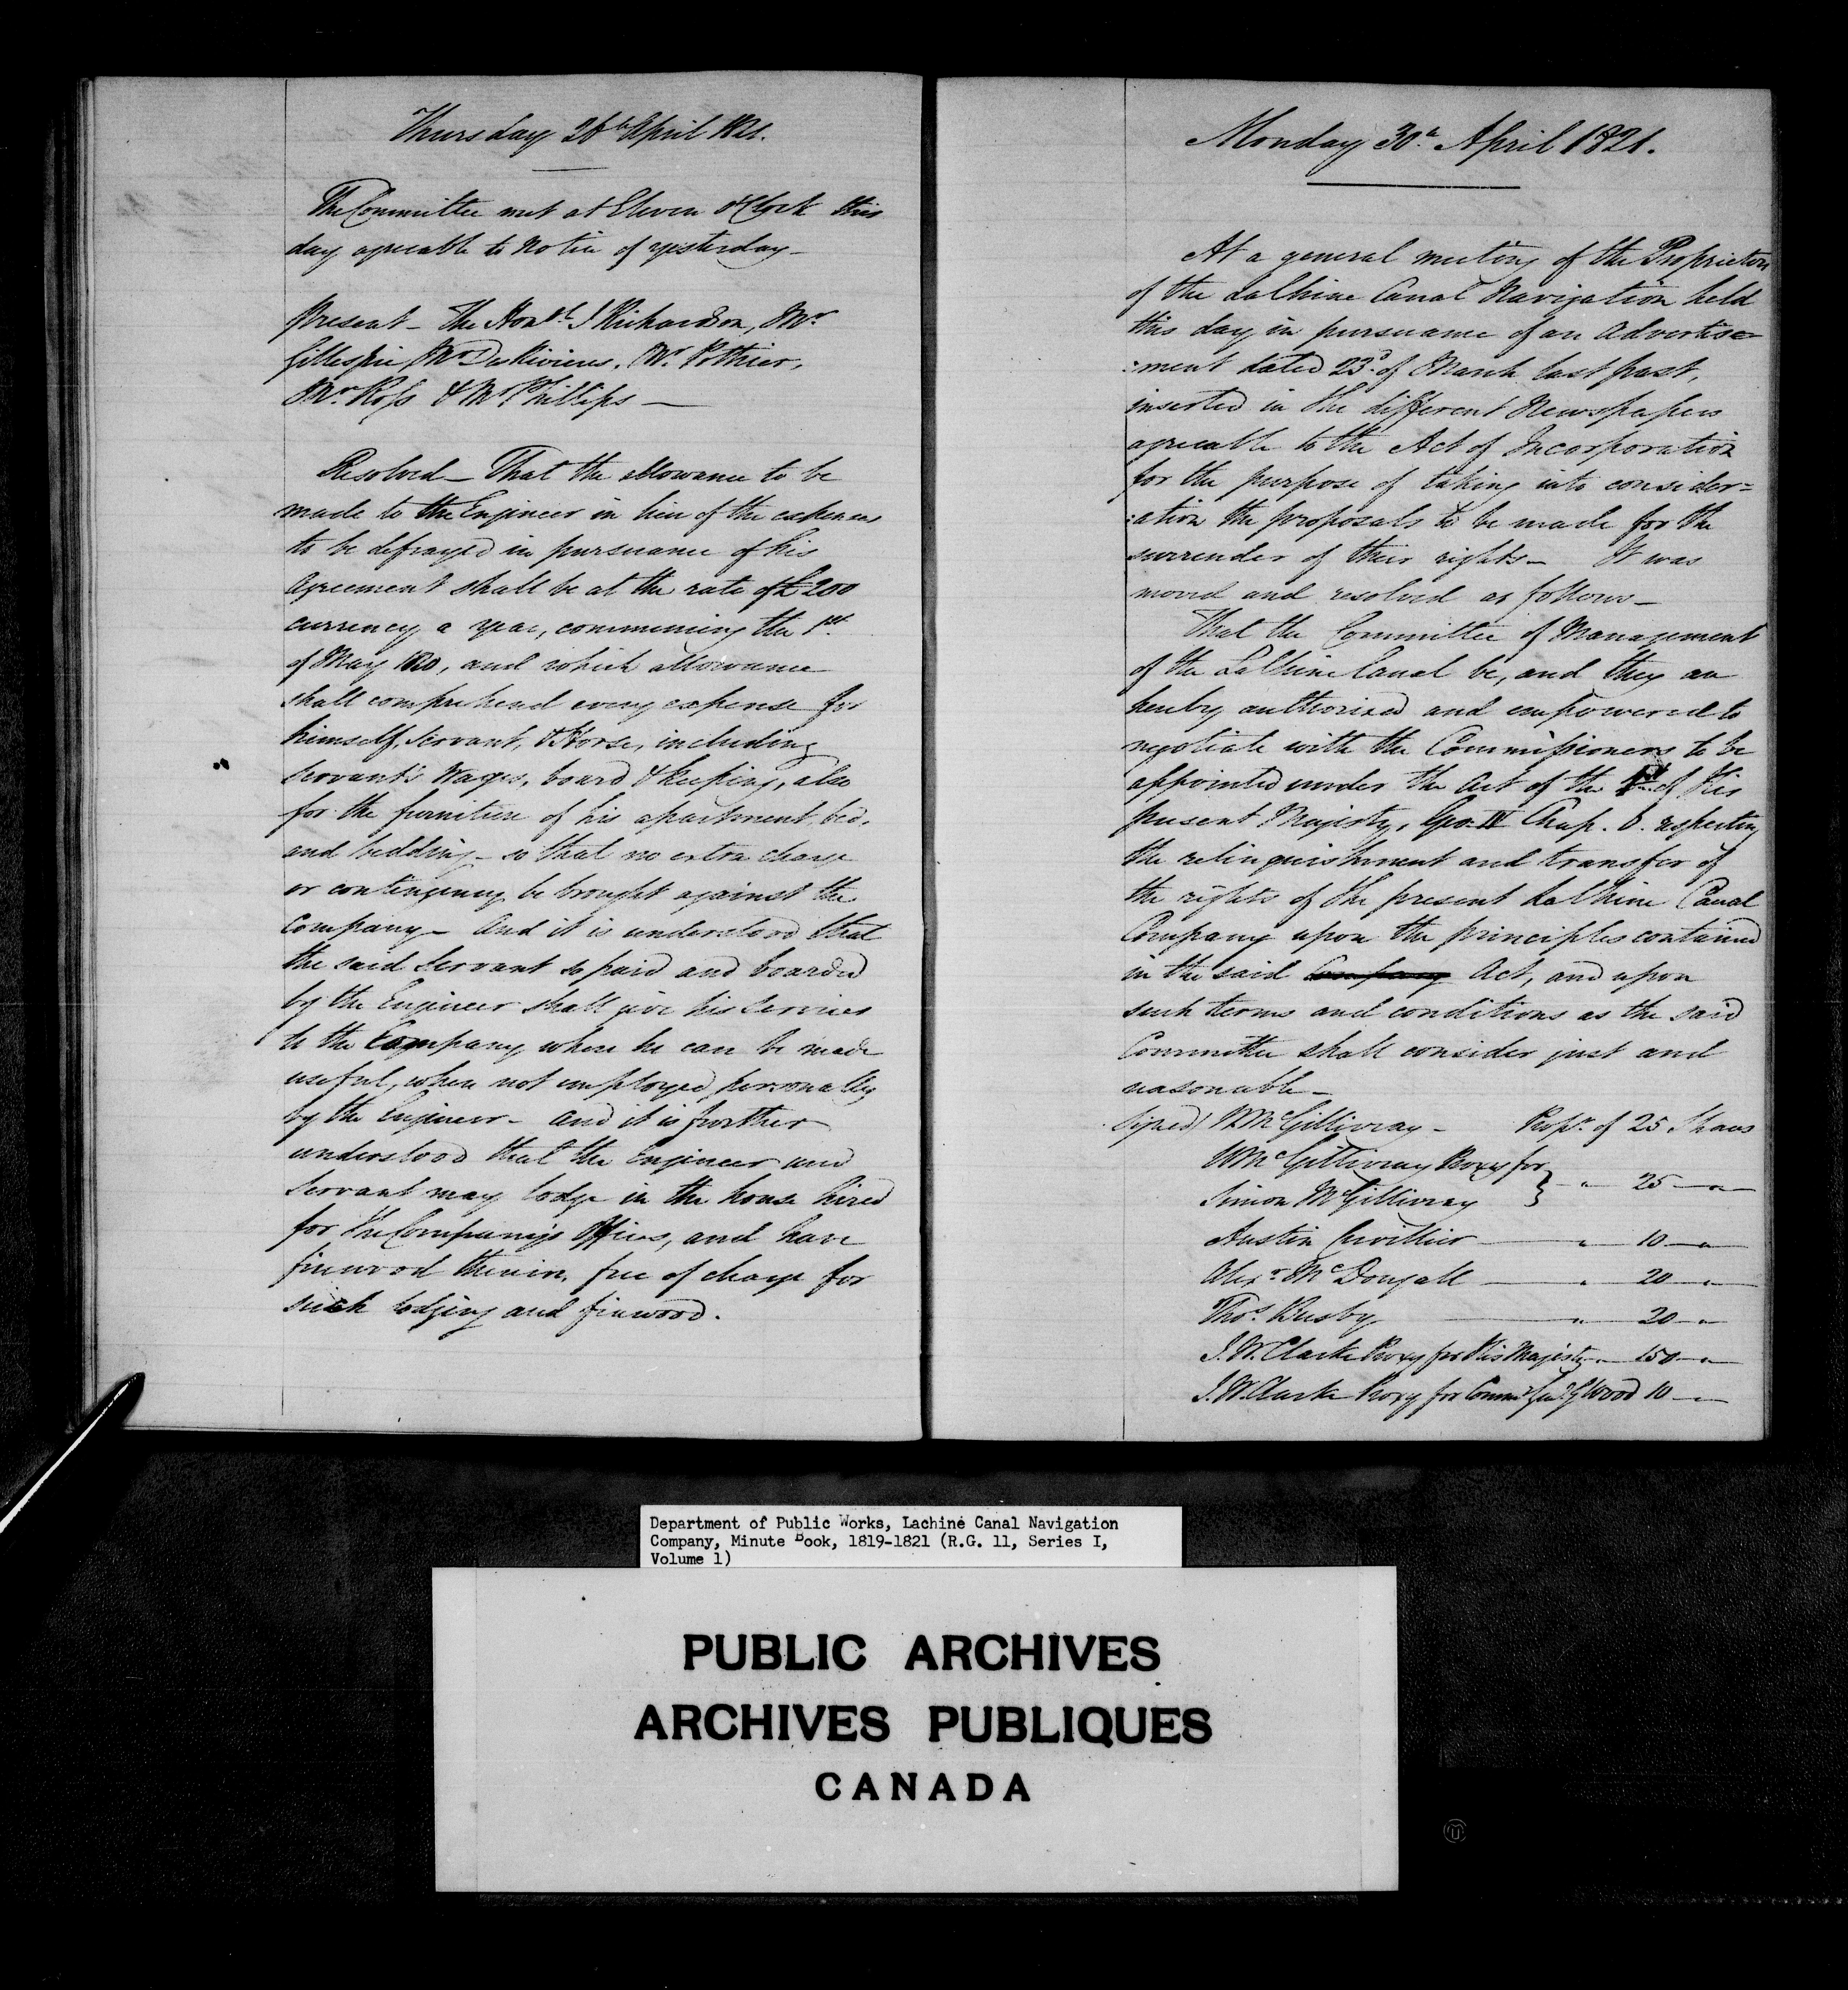 Thursday 26th April 1821.
The Committee met at Eleven oClock this
day agreeable to notice of yesterday —
Present — The Honble J Richardson, Mr
Gillespie, Mr DesRivieres, Mr Pothier,
Mr Ross & Mr Phillips —
Resolved — That the allowance to be
made to the Engineer in lieu of the expenses
to be defrayed in pursuance of his
agreement shall be at the rate of £200
currency a year, commencing the 1st
of May 1820, and which allowance
shall comprehend every expense for
himself, Servant, & Horse, including
Servant's Wages, board & keeping, also
for the furniture of his apartment, bed,
and bedding — so that no extra charge
or contingency be brought against the
Company — And it is understood that
the said Servant so paid and boarded
by the Engineer shall give his Services
to the Company where he can be made
useful, when not employed personally
by the Engineer — and it is further
understood that the Engineer and
Servant may lodge in the house hired
for the Company's Offices, and have
firewood therein, free of charge for
such lodging and firewood.
Monday 30th April 1821.
At a general meeting of the Proprietors
of the LaChine Canal Navigation held
this day in pursuance of an Advertise=
:ment dated 23d of March last past,
inserted in the different Newspapers
agreeable to the Act of Incorporation
for the purpose of taking into consider=
:ation the proposals to be made for the
surrender of their rights — It was
moved and resolved as follows —
That the Committee of Management
of the LaChine Canal be, and they are
hereby authorized and empowered to
negotiate with the Commissioners to be
appointed under the Act of the 1st of His
present Majesty, Geo. IV Chap. 6. respecting
the relinquishment and transfer of
the rights of the present LaChine Canal
Company upon the principles contained
in the said Company Act, and upon
such terms and conditions as the said
Committee shall consider just and
reasonable —
Signed) W McGillivray — Propr. of 25 Shares
W McGillivray Proxy for } " 25 "
Simon McGillivray
Austin Cuvillier " 10 "
Alexr. McDougall " 20 "
Thos. Busby " 20 "
J. W. Clarke Proxy for His Majesty " 150 "
J. W. Clarke Proxy for Commy Genl G Wood 10 "
Department of Public Works, Lachine Canal Navigation
Company, Minute Book, 1819-1821 (R.G. 11, Series I,
Volume 1)
PUBLIC ARCHIVES
ARCHIVES PUBLIQUES
CANADA